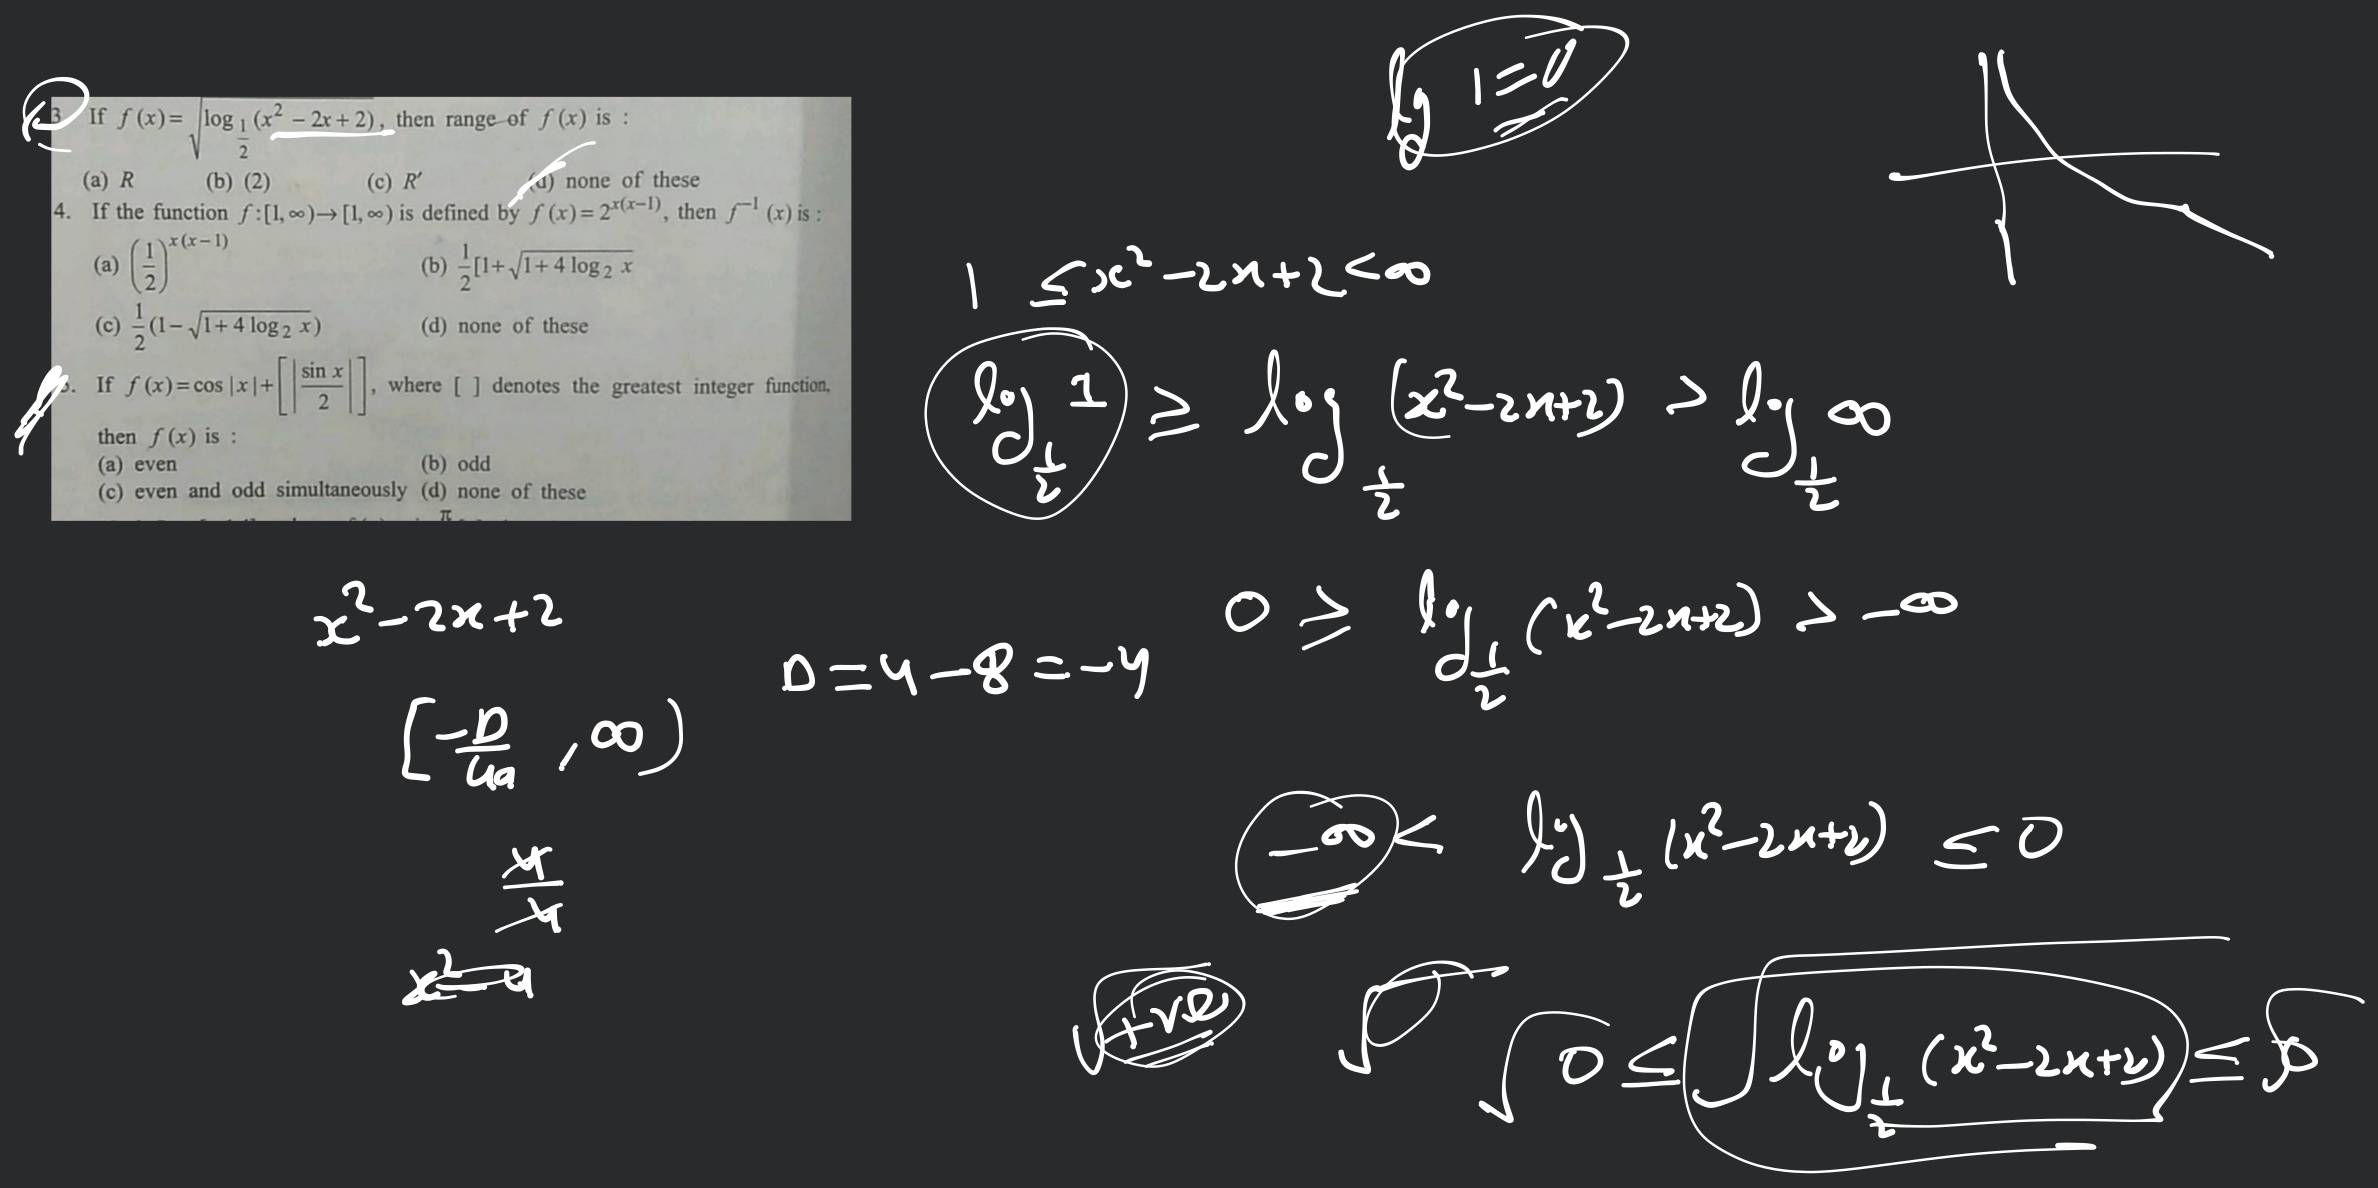 3. If f(x) = √(log_{1/2} (x² − 2x + 2)), then range of f(x) is :
(a) R (b) (2) (c) R′ (d) none of these
4. If the function f : [1, ∞) → [1, ∞) is defined by f(x) = 2^{x(x−1)}, then f⁻¹(x) is :
(a) (1/2)^{x(x−1)} (b) 1/2 [1+√(1 + 4 log₂ x)
(c) 1/2 (1 − √(1 + 4 log₂ x)) (d) none of these
If f(x) = cos |x| + [|sin x / 2|], where [ ] denotes the greatest integer function,
then f(x) is :
(a) even (b) odd
(c) even and odd simultaneously (d) none of these
π
log 1 = 0
1 ≤ x² − 2x + 2 < ∞
log_{1/2} 1 ≥ log_{1/2} (x² − 2x + 2) > log_{1/2} ∞
x² − 2x + 2
D = 4 − 8 = −4
0 ≥ log_{1/2} (x² − 2x + 2) > −∞
[−D/4a , ∞)
4/4
−∞ < log_{1/2} (x² − 2x + 2) ≤ 0
√+ve
√0 ≤ √log_{1/2} (x² − 2x + 2) ≤ √0